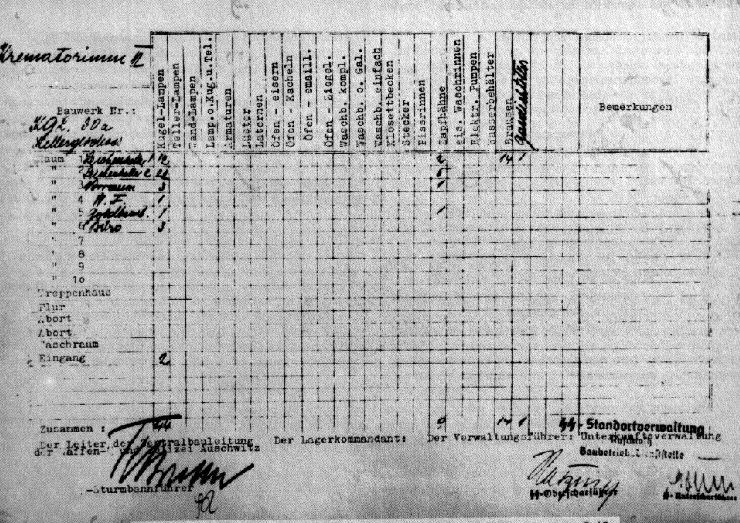 Krematorium II
Bauwerk Nr.:
KGL 30a
Kellergeschoss
Kugel-Lampen
Teller-Lampen
Wand-Lampen
Lamp.o.Kug.u.Tel.
Armaturen
Lüster
Laternen
Öfen - eisern
Öfen - Kacheln
Öfen - emaill.
Öfen - Ziegel.
Waschb. kompl.
Waschb. o. Gal.
Waschb. einfach
Klosettbecken
Stecker
Pissrinnen
Zapfhähne
eis. Waschrinnen
Elektr. Pumpen
Wasserbehälter
Brausen
Bemerkungen
Raum 1 Leichenkeller 1 12 14 1
" 2 Leichenkeller 2 5
" 3 Vorraum 3 1
" 4 1
" 5 1 1
" 6 Büro 3
" 7
" 8
" 9
" 10
Treppenhaus
Flur
Abort
Abort
Waschraum
Eingang 2
Zusammen : 14 1
Der Leiter der Zentralbauleitung
der Waffen- und Polizei Auschwitz
Der Lagerkommandant:
Der Verwaltungsführer:
SS-Standortverwaltung
Auschwitz
Unterkunftsverwaltung
-Sturmbannführer
SS-Oberscharführer
SS-Unterscharführer